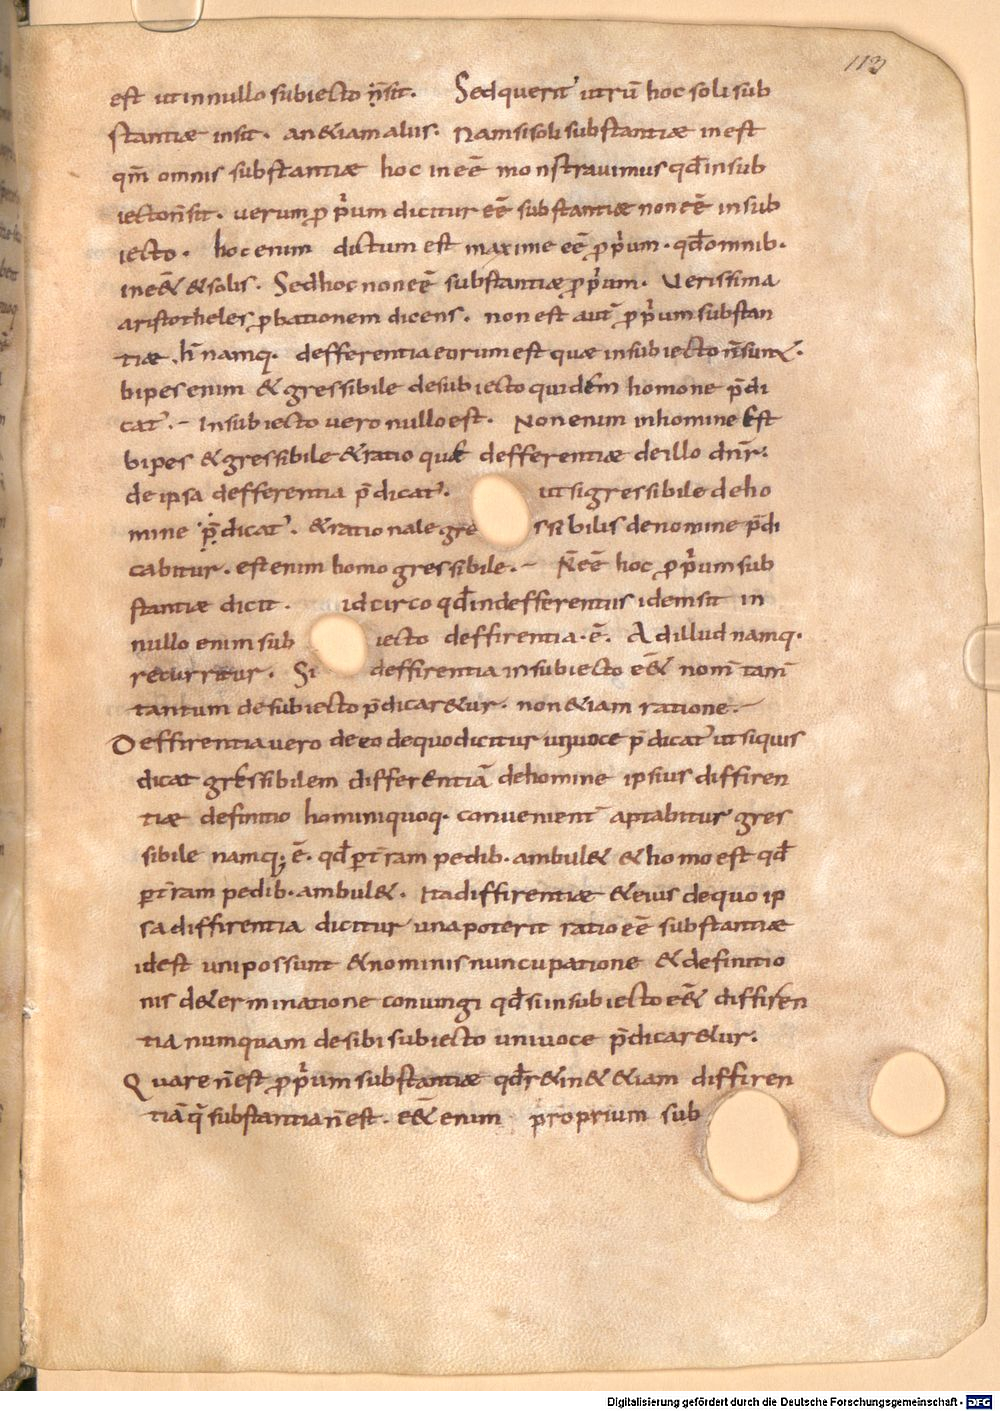 113
est ut in nullo subiecto n̄ sit. Sed querit' utrū hoc soli sub
stantiæ insit. an &iam aliis. Nam si soli substantiæ inest
qm̄ omnis substantiæ hoc inēē monstravimus qđ in sub
iecto n̄ sit. verum ꝓpriu̇m dicitur ēē substantiæ non ēē in sub
iecto. hoc enim dictum est maxime ēē ꝓpriu̇m. qđ omnib.
inē& & solis. Sed hoc non ēē substantiæ ꝓprium. Verissima
aristotheles ꝓbationem dicens. non est aut̄ ꝓprium substan
tiæ. h̄ namq. defferentia eorum est quæ in subiecto n̄ sunt.
bipes enim & gressibile de subiecto quidem homone p̄di
cat'. – In subiecto vero nullo est. Non enim in homine est
bipes & gressibile & ratio quæ defferentiæ de illo dn̄r:
de ipsa defferentia p̄dicat'. ut si gressibile de ho
mine p̄dicat'. & rationale gre ssibilis de nomine p̄di
cabitur. est enim homo gressibile. – N̄ ēē hoc ꝓprium sub
stantiæ dicit. idcirco qđ in defferentiis idem sit in
nullo enim sub iecto deffirentia. ē. Ad illud namq.
recurritur. Si deffirentia in subiecto ē& nom̄ tam̄
tantum de subiecto p̄dicar&ur. non &iam ratione. –
Deffirentia vero de eo de quo dicitur univoce p̄dicat' ut si quis
dicat gressibilem differentiā de homine ipsius diffiren
tiæ definitio hominiquoq. convenient' aptabitur gres
sibile namq; ē. qđ ꝑ t̄ram pedib. ambul& & homo est qđ
ꝑ t̄ram pedib. ambul&. Ita diffirentiæ & eius de quo ip
sa diffirentia dicitur una poterit ratio ēē substantiæ
id est uni possunt & nominis nuncupatione & definitio
nis d&erminatione coniungi qđ si in subiecto ē& diffiren
tia numquam de sibi subiecto univoce p̄dicar&ur.
Quare n̄ est ꝓprium substantiæ qđ r&in& &iam diffiren
tiā q̄ substantia n̄ est. ē& enim proprium sub
Digitalisierung gefördert durch die Deutsche Forschungsgemeinschaft - DFG